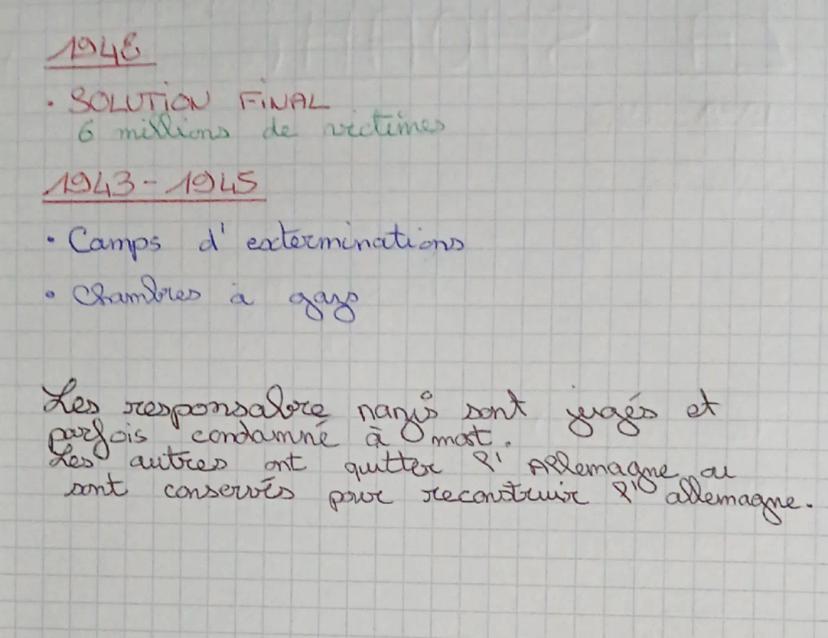 1948
• SOLUTION FINAL
6 millions de victimes
1943 - 1945
• Camps d'exterminations
• Chambres à gazs
Les responsabre nazis sont jugés et
parfois condamné à mort.
Les autres ont quitter l'Allemagne ou
sont conservés pour reconstruir l'allemagne.